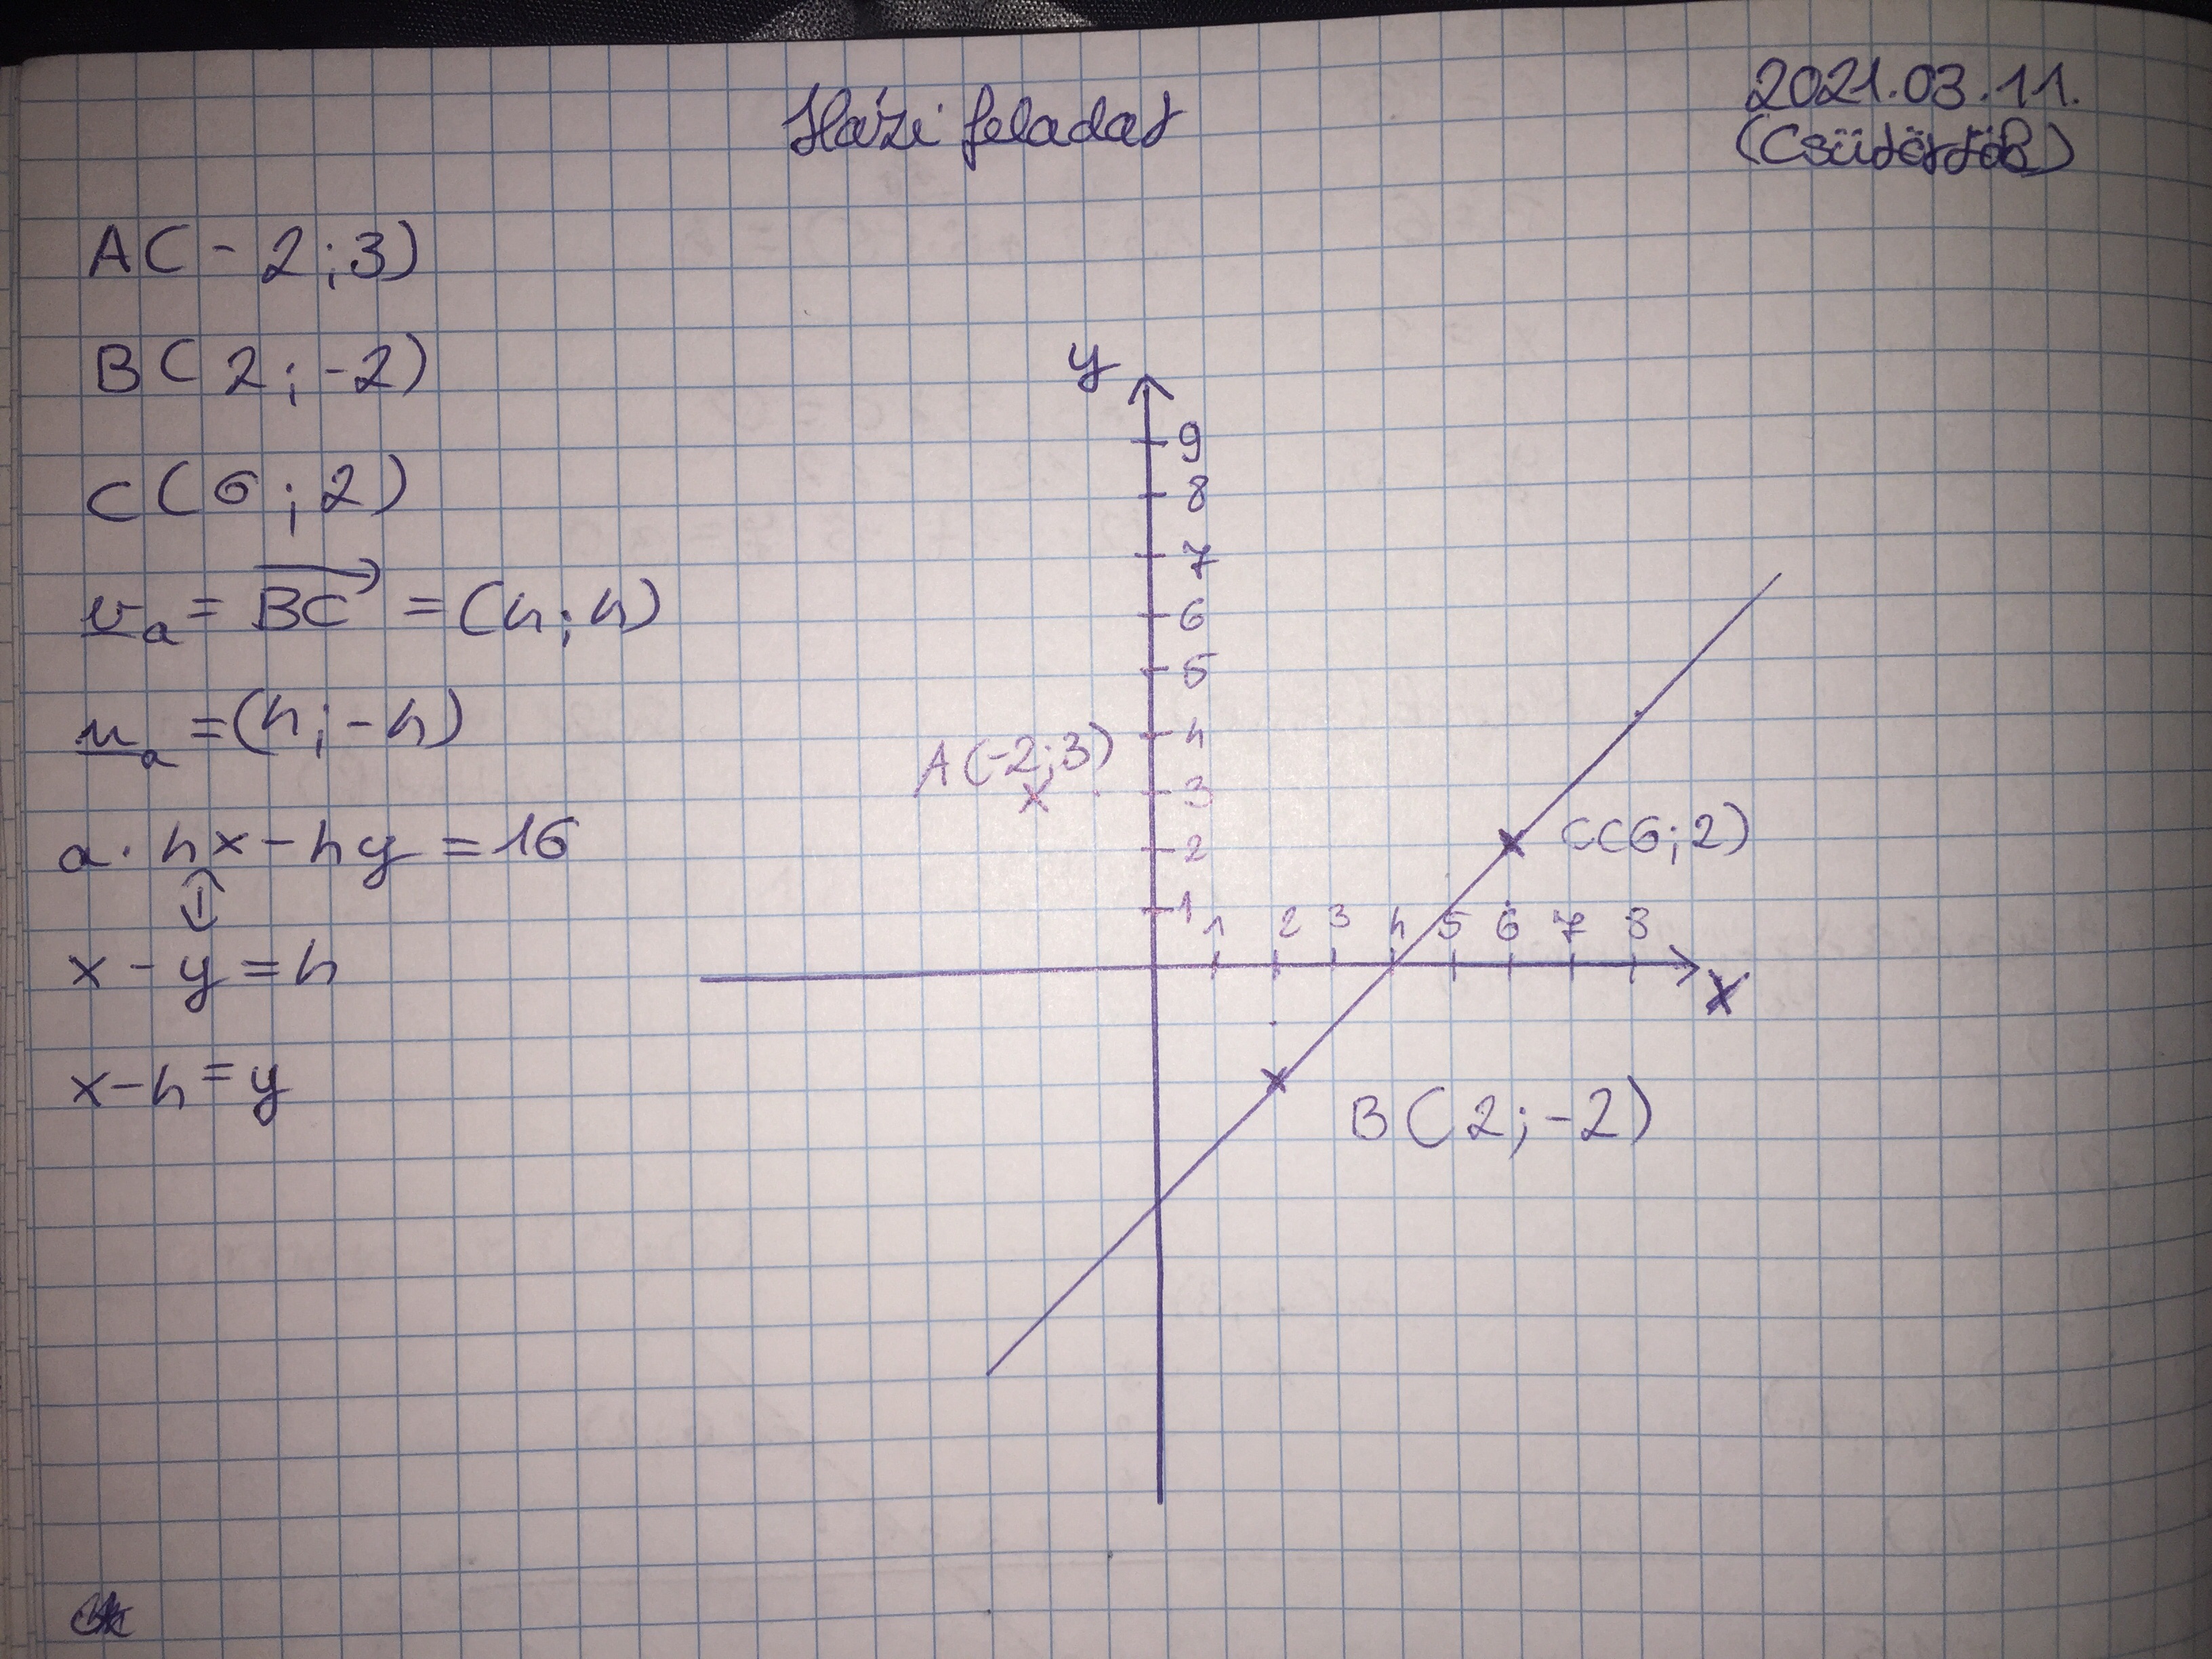 Házi feladat
2021.03.11.
(Csütörtök)
A(-2;3)
B(2;-2)
C(6;2)
v_a = BC→ = (4;4)
n_a = (4;-4)
a. 4x-4y = 16
↕
x-y = 4
x-4 = y
y
9
8
7
6
5
4
A(-2;3)
3
2
C(6;2)
1
1 2 3 4 5 6 7 8
x
B(2;-2)